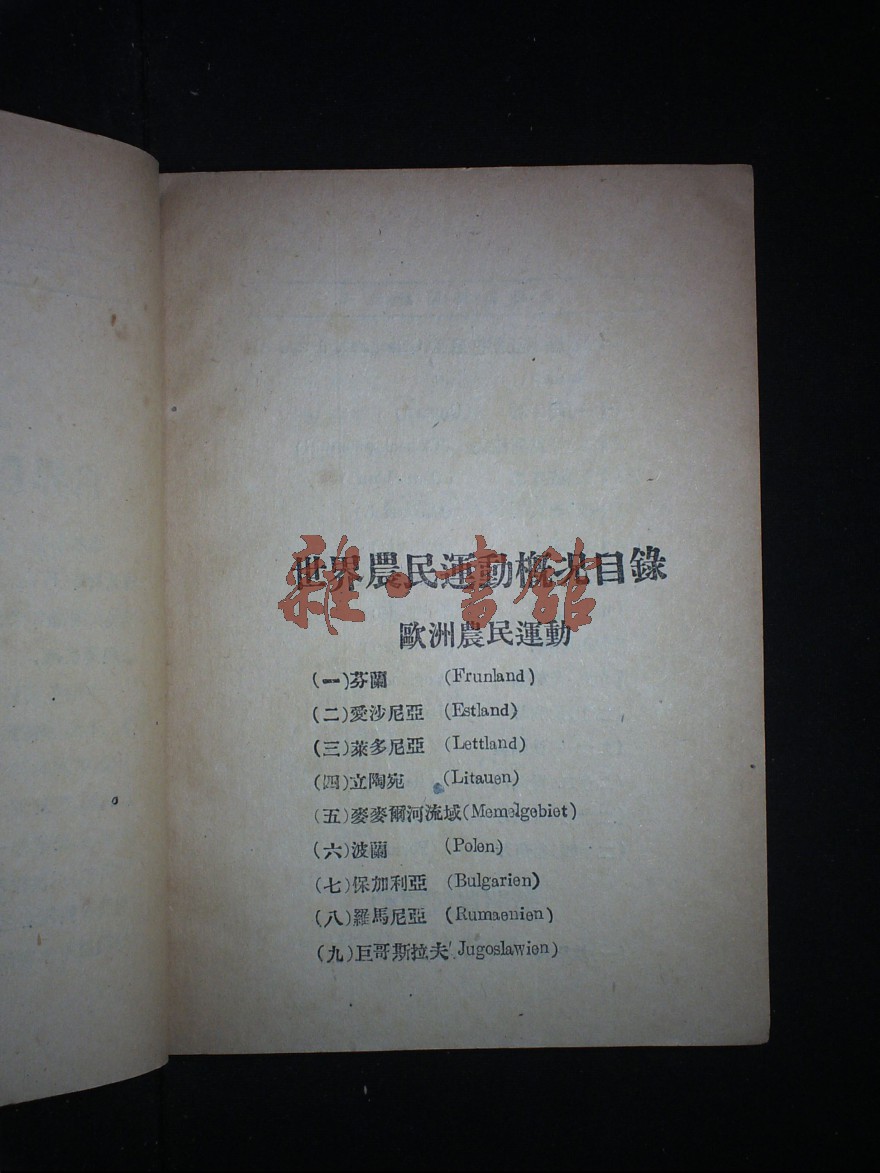 世界農民運動概况目錄
雜·書館
歐洲農民運動
(一)芬蘭 (Frunland)
(二)愛沙尼亞 (Estland)
(三)萊多尼亞 (Lettland)
(四)立陶宛 (Litauen)
(五)麥麥爾河流域(Memelgebiet)
(六)波蘭 (Polen)
(七)保加利亞 (Bulgarien)
(八)羅馬尼亞 (Rumaenien)
(九)巨哥斯拉夫(Jugoslawien)